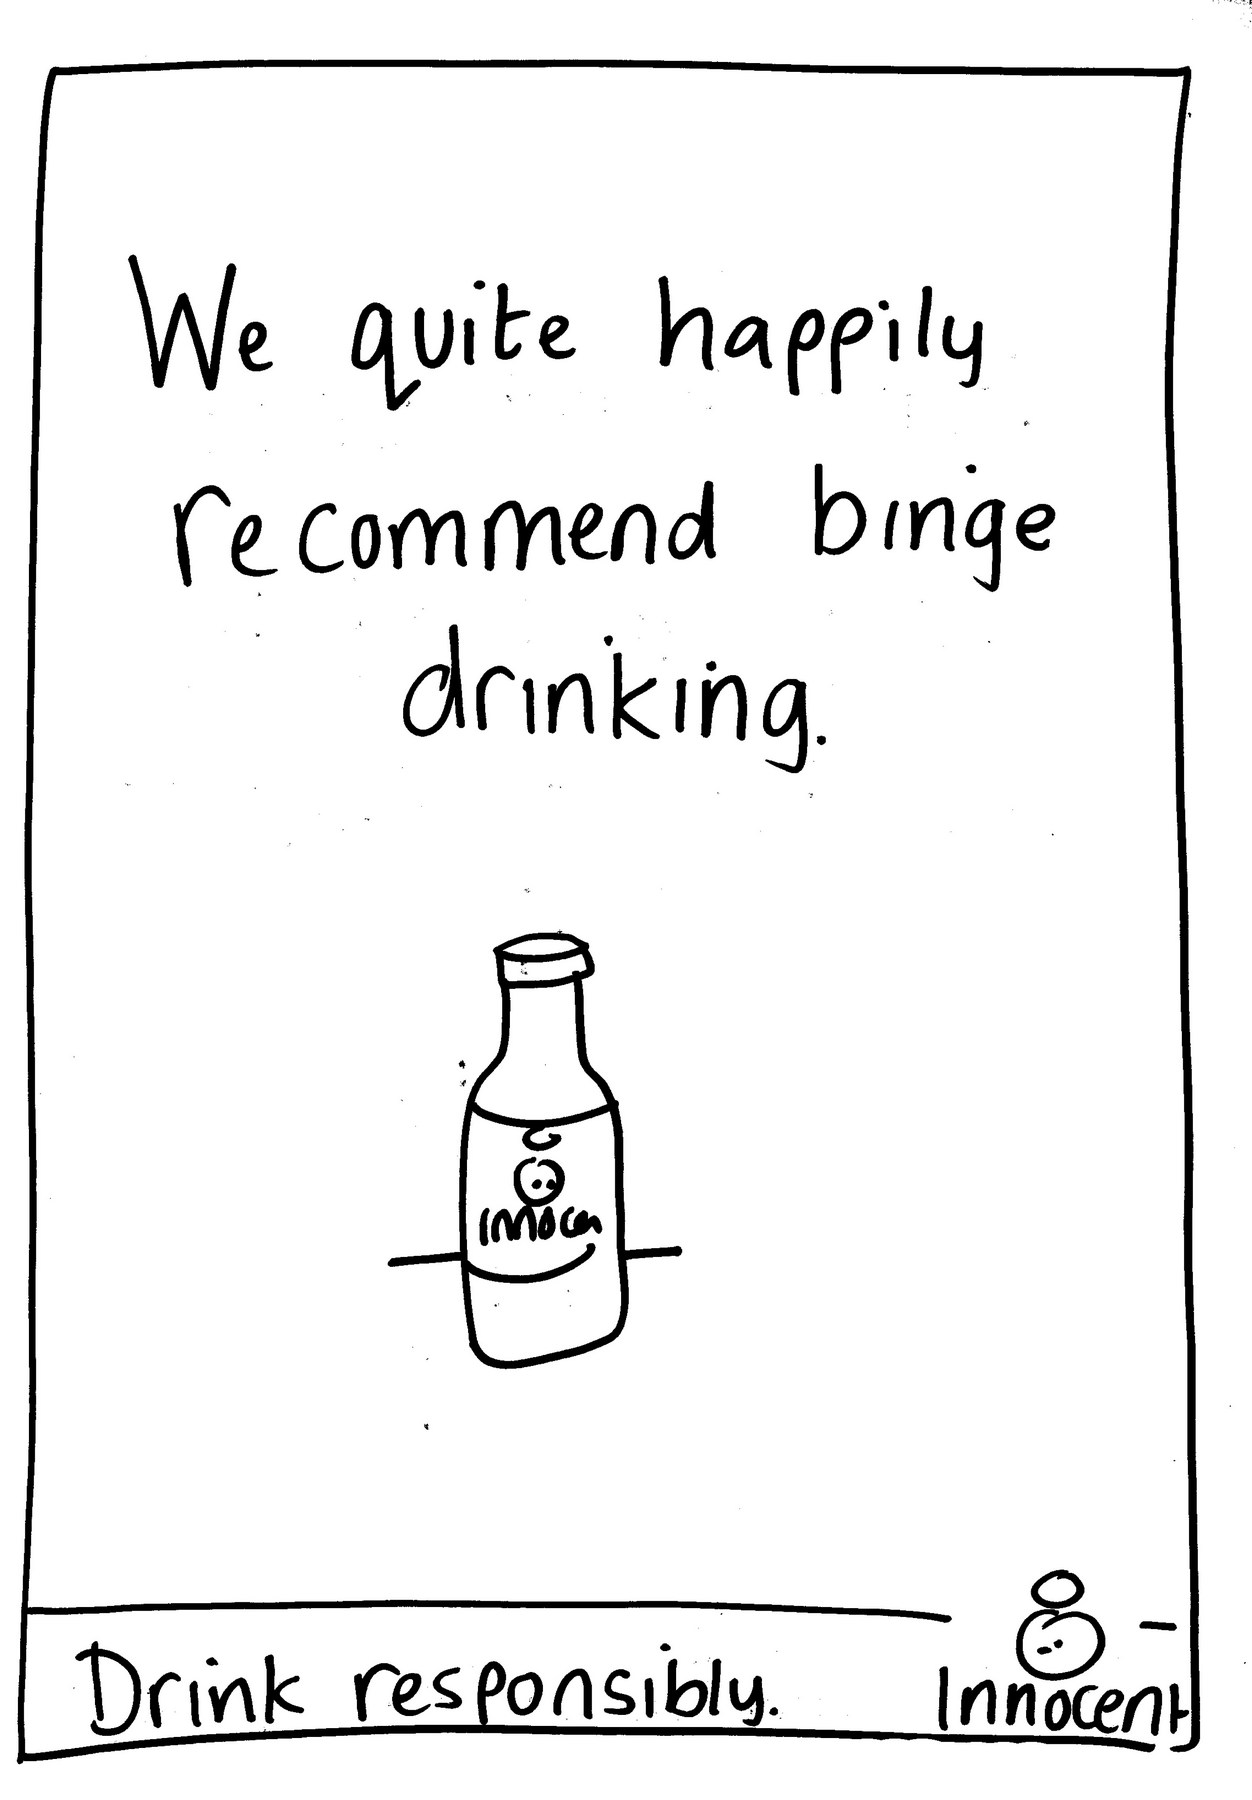 We quite happily
recommend binge
drinking.
Innocen
Drink responsibly.
Innocent